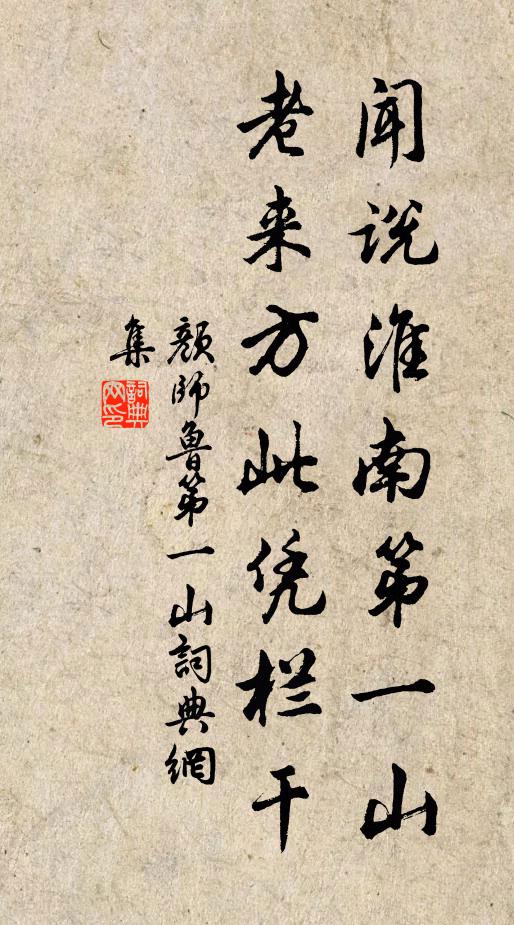 闻说淮南第一山
老来方此凭栏干
颜师鲁第一山詞典網
集
詞典网印